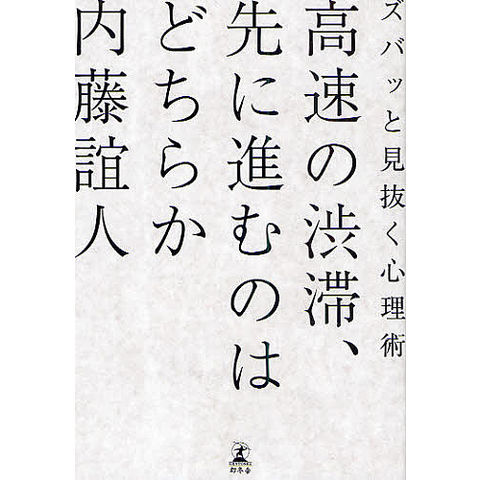 ズバッと見抜く心理術
高速の渋滞、
先に進むのは
どちらか
内藤誼人
幻冬舎